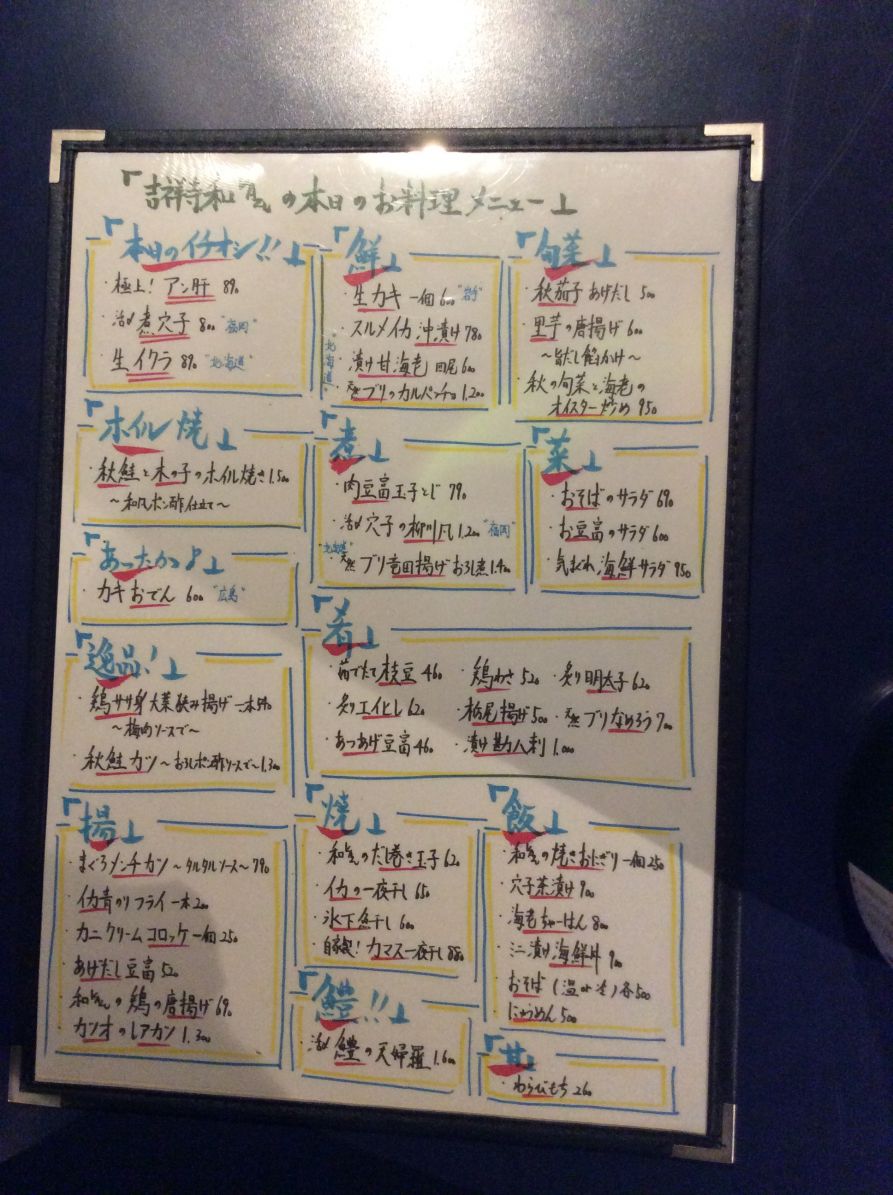 「吉祥寺和気の本日のお料理メニュー」
「本日のイチオシ!!」
・極上!アン肝 890
・活〆煮穴子 800 "福岡"
・生イクラ 890 "北海道"
「鮮」
・生カキ 一個 600
・スルメイカ沖漬け 780
・漬け甘海老 四尾 600
"北海道"
・天然ブリのカルパッチョ 1.200
「旬菜」
・秋茄子あげだし 500
・里芋の唐揚げ 600
～旨だし餡かけ～
・秋の旬菜と海老の
オイスター炒め 950
「ホイル焼」
・秋鮭と木の子のホイル焼き 1.500
～和風ポン酢仕立て～
「煮」
・肉豆富玉子とじ 790
・活〆穴子の柳川風 1.200 "福岡"
"北海道"
・天然ブリ竜田揚げおろし煮 1.400
「菜」
・おそばのサラダ 690
・お豆富のサラダ 600
・気まぐれ海鮮サラダ 950
「あったか♪」
・カキおでん 600 "広島"
「逸品!」
・鶏ササ身大葉挟み揚げ 一本
～梅肉ソースで～
・秋鮭カツ～おろしポン酢ソースで～ 1.300
「肴」
・茹でたて枝豆 460
・鶏わさ 520
・炙り明太子 620
・炙りエイヒレ 620
・栃尾揚げ 500
・天然ブリなめろう 900
・あつあげ豆富 460
・漬け馬刺 1.000
「揚」
・まぐろメンチカツ～タルタルソース～ 790
・イカ青のりフライ一本 200
・カニクリームコロッケ一個 250
・あげだし豆富 520
・和気の鶏の唐揚げ 690
・カツオのレアカツ 1.300
「焼」
・和気のだし巻き玉子 620
・イカの一夜干し 650
・氷下魚干し 600
・自家製!カマス一夜干し 880
「鱧!!」
・活〆鱧の天婦羅 1.600
「飯」
・和気の焼きおにぎり一個 250
・穴子茶漬け 900
・海老ちゃーはん 800
・ミニ漬け海鮮丼 900
・おそば(温or冷)各500
・にゅうめん 500
「甘」
・わらびもち 260